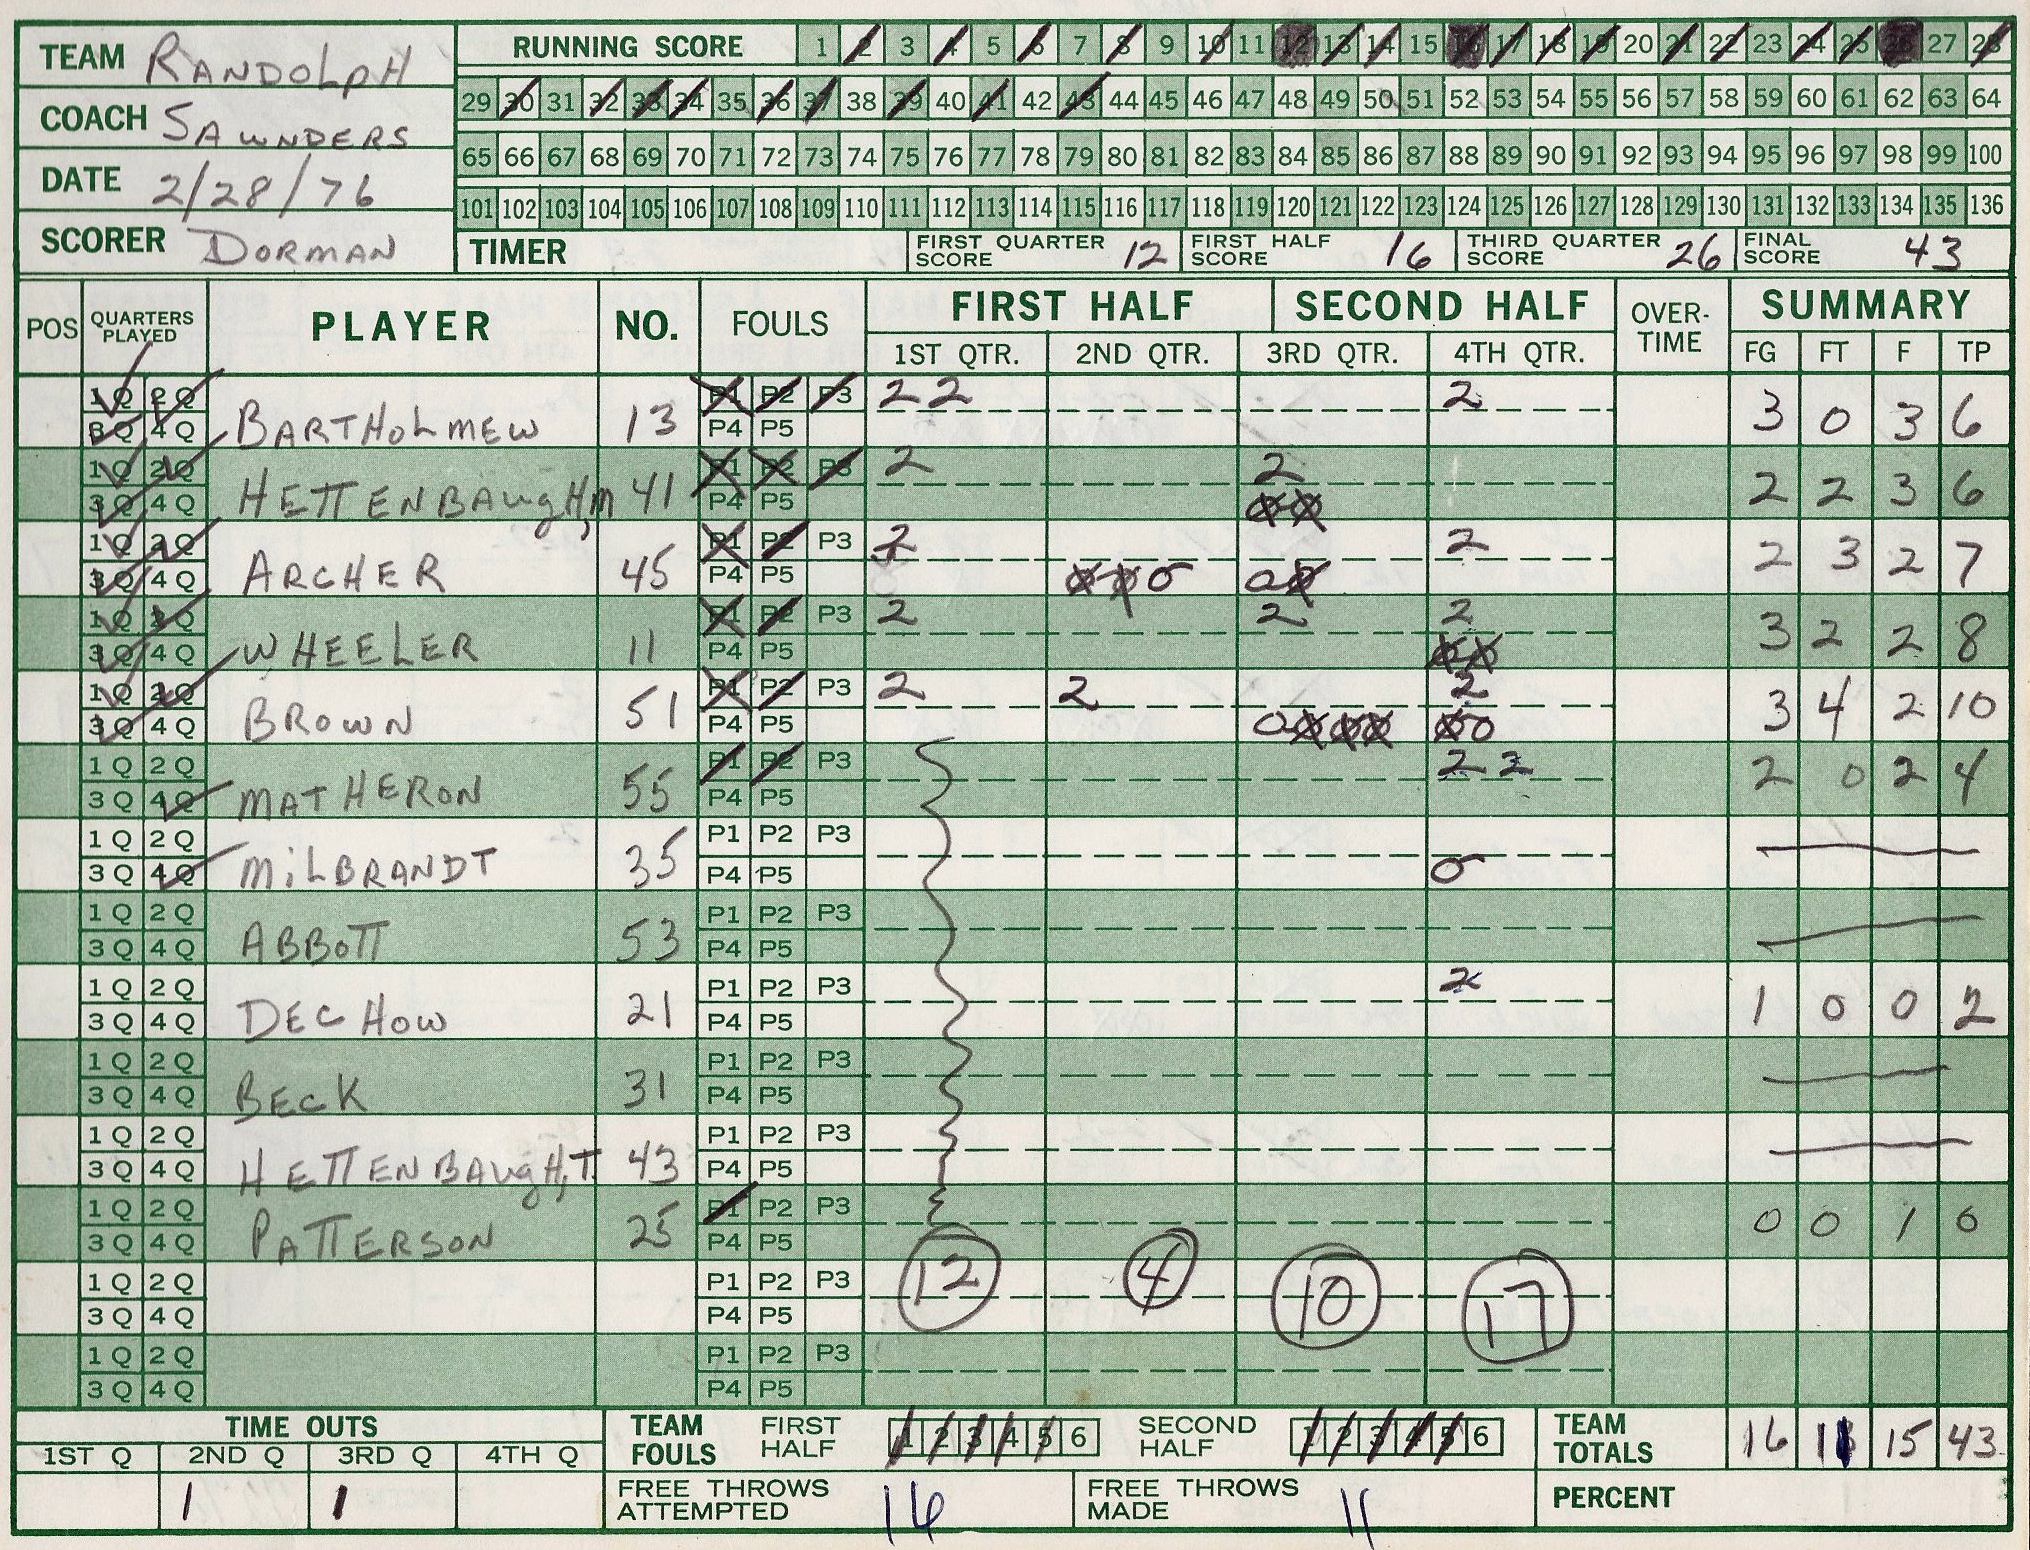 TEAM RANDOLPH
COACH SAWNDERS
DATE 2/28/76
SCORER DORMAN
RUNNING SCORE 1 2 3 4 5 6 7 8 9 10 11 12 13 14 15 16 17 18 19 20 21 22 23 24 25 26 27 28
29 30 31 32 33 34 35 36 37 38 39 40 41 42 43 44 45 46 47 48 49 50 51 52 53 54 55 56 57 58 59 60 61 62 63 64
65 66 67 68 69 70 71 72 73 74 75 76 77 78 79 80 81 82 83 84 85 86 87 88 89 90 91 92 93 94 95 96 97 98 99 100
101 102 103 104 105 106 107 108 109 110 111 112 113 114 115 116 117 118 119 120 121 122 123 124 125 126 127 128 129 130 131 132 133 134 135 136
TIMER FIRST QUARTER SCORE 12 FIRST HALF SCORE 16 THIRD QUARTER SCORE 26 FINAL SCORE 43
POS QUARTERS PLAYED PLAYER NO. FOULS FIRST HALF SECOND HALF OVER-TIME SUMMARY
1ST QTR. 2ND QTR. 3RD QTR. 4TH QTR. FG FT F TP
1Q 2Q P1 P2 P3 2 2 2
3Q 4Q BARTHOLMEW 13 P4 P5 3 0 3 6
1Q 2Q P1 P2 P3 2 2
3Q 4Q HETTENBAUGH,M 41 P4 P5 2 2 3 6
1Q 2Q P1 P2 P3 2 2
3Q 4Q ARCHER 45 P4 P5 2 3 2 7
1Q 2Q P1 P2 P3 2 2 2
3Q 4Q WHEELER 11 P4 P5 3 2 2 8
1Q 2Q P1 P2 P3 2 2 2
3Q 4Q BROWN 51 P4 P5 3 4 2 10
1Q 2Q P1 P2 P3 2 2
3Q 4Q MATHERON 55 P4 P5 2 0 2 4
1Q 2Q P1 P2 P3
3Q 4Q MiLBRANDT 35 P4 P5 0
1Q 2Q P1 P2 P3
3Q 4Q ABBOTT 53 P4 P5
1Q 2Q P1 P2 P3 2
3Q 4Q DECHOW 21 P4 P5 1 0 0 2
1Q 2Q P1 P2 P3
3Q 4Q BECK 31 P4 P5
1Q 2Q P1 P2 P3
3Q 4Q HETTENBAUGH,T. 43 P4 P5
1Q 2Q P1 P2 P3
3Q 4Q PATTERSON 25 P4 P5 0 0 1 0
1Q 2Q P1 P2 P3 12 4 10 17
3Q 4Q P4 P5
1Q 2Q P1 P2 P3
3Q 4Q P4 P5
TIME OUTS
1ST Q 2ND Q 3RD Q 4TH Q
1 1
TEAM FOULS FIRST HALF 1 2 3 4 5 6 SECOND HALF 1 2 3 4 5 6
TEAM TOTALS 16 11 15 43
FREE THROWS ATTEMPTED 16 FREE THROWS MADE 11
PERCENT